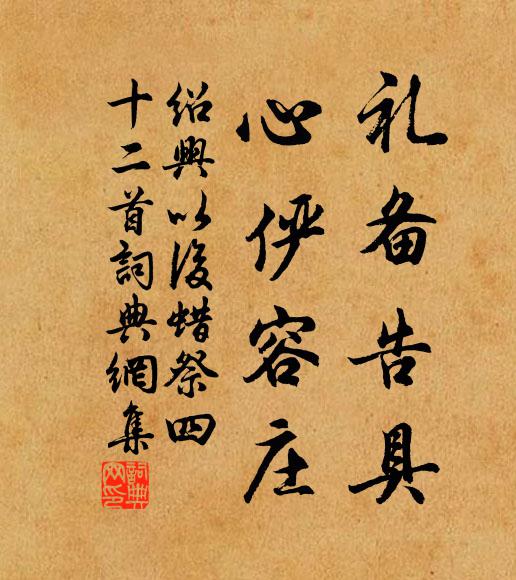 礼备告具
心俨容庄
绍興以後蜡祭四
十二首詞典網集
詞典網印